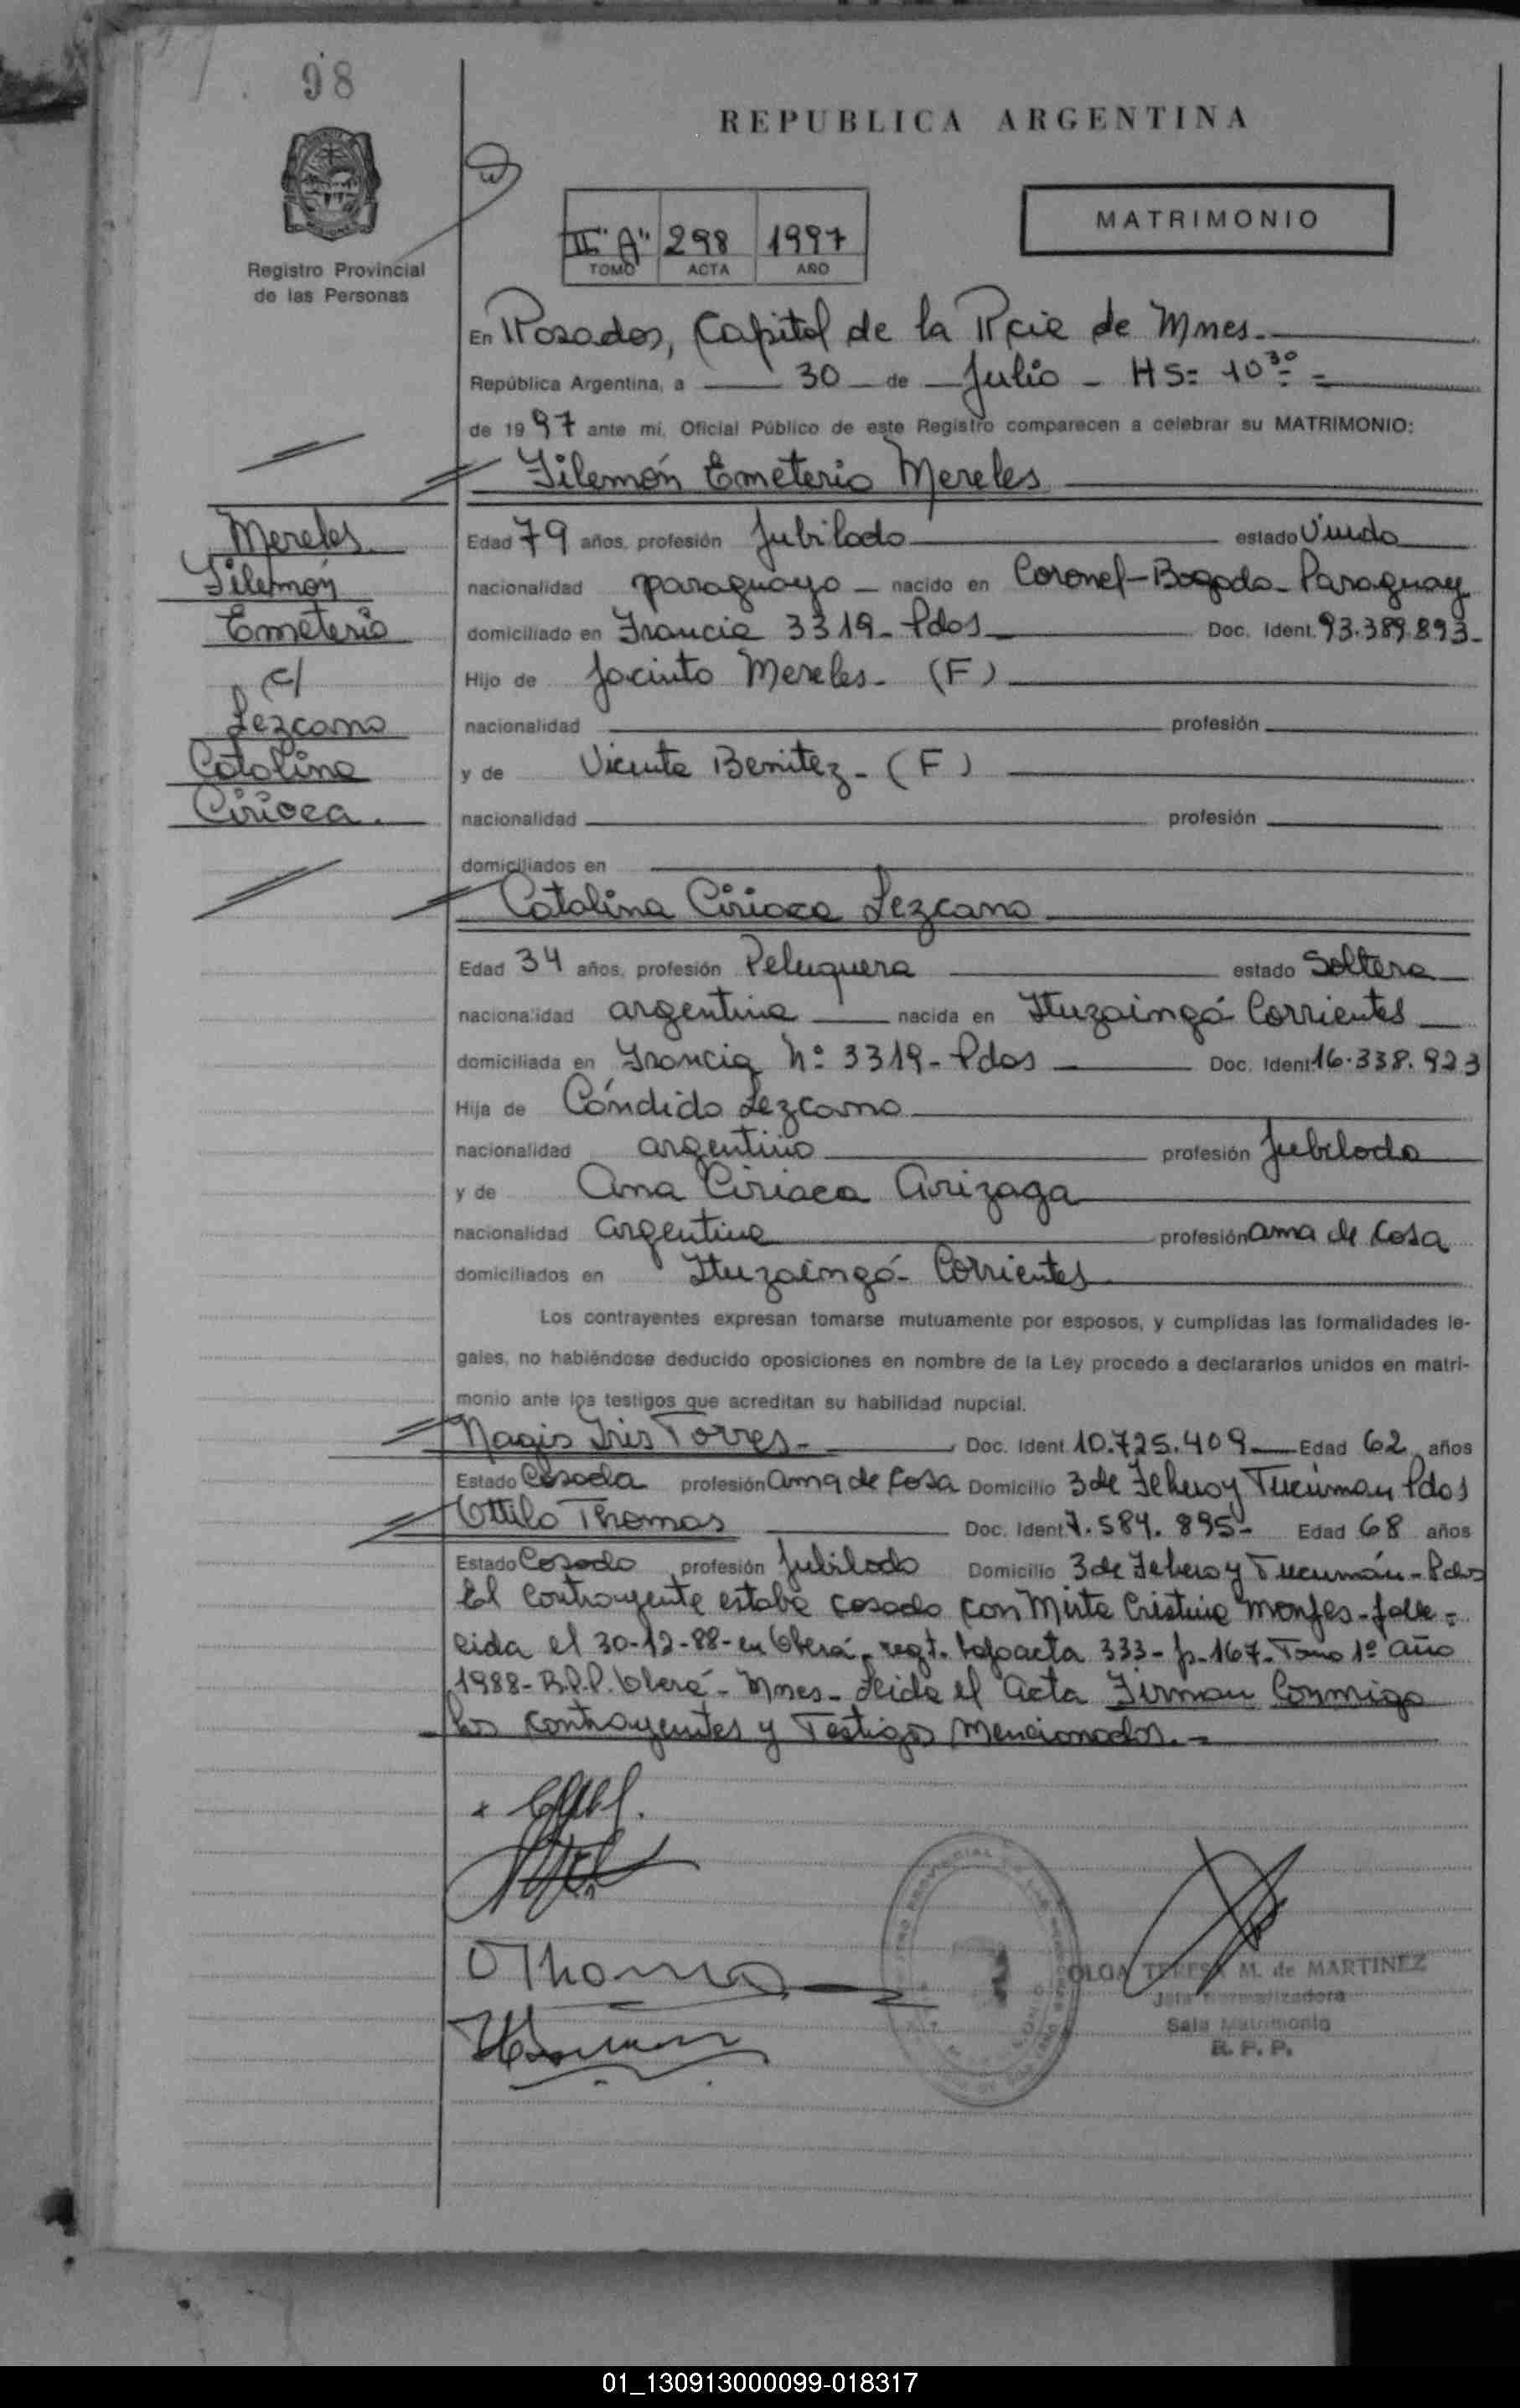 98
REPUBLICA ARGENTINA
MATRIMONIO
II "A" 298 1997
TOMO ACTA AÑO
Registro Provincial
de las Personas
En Posadas, Capital de la Pcia de Mnes.
República Argentina, a 30 de Julio - HS= 10 30
de 1997 ante mí, Oficial Público de este Registro comparecen a celebrar su MATRIMONIO:
Filemón Emeterio Mereles
Mereles
Filemón
Emeterio
c/
Lezcano
Catalina
Ciriaca.
Edad 79 años, profesión Jubilado estado Viudo
nacionalidad paraguayo - nacido en Coronel-Bogado-Paraguay
domiciliado en Francia 3319- Pdas Doc. Ident. 93.389.893-
Hijo de Jacinto Mereles- (F)
nacionalidad profesión
y de Vicenta Benitez- (F)
nacionalidad profesión
domiciliados en
Catalina Ciriaca Lezcano
Edad 34 años, profesión Peluquera estado Soltera
nacionalidad argentina nacida en Ituzaingó-Corrientes
domiciliada en Francia Nº 3319- Pdas Doc. Ident. 16.338.923
Hija de Cándido Lezcano
nacionalidad argentino profesión Jubilado
y de Ana Ciriaca Arizaga
nacionalidad argentina profesión ama de casa
domiciliados en Ituzaingó- Corrientes
Los contrayentes expresan tomarse mutuamente por esposos, y cumplidas las formalidades le-
gales, no habiéndose deducido oposiciones en nombre de la Ley procedo a declararlos unidos en matri-
monio ante los testigos que acreditan su habilidad nupcial.
Iris Torres- Doc. Ident. 10.725.409 Edad 62 años
Estado Casada profesión ama de casa Domicilio 3 de Febrero y Tucuman Pdas
Ottilo Thomas Doc. Ident. 7.584.895- Edad 68 años
Estado Casado profesión Jubilado Domicilio 3 de Febrero y Tucumán-Pdas
El contrayente estaba casado con Mirta Cristina Monges-falle=
cida el 30-12-88-en Oberá- regt. bajo acta 333- p-167-Tomo 1º año
1988-R.P.P. Oberá- Mnes- Leida el Acta Firman Conmigo
los contrayentes y Testigos Mencionados.-
OThomas
OLGA TERESA M. de MARTINEZ
Jefa Normalizadora
Sala Matrimonio
R. P. P.
01_130913000099-018317